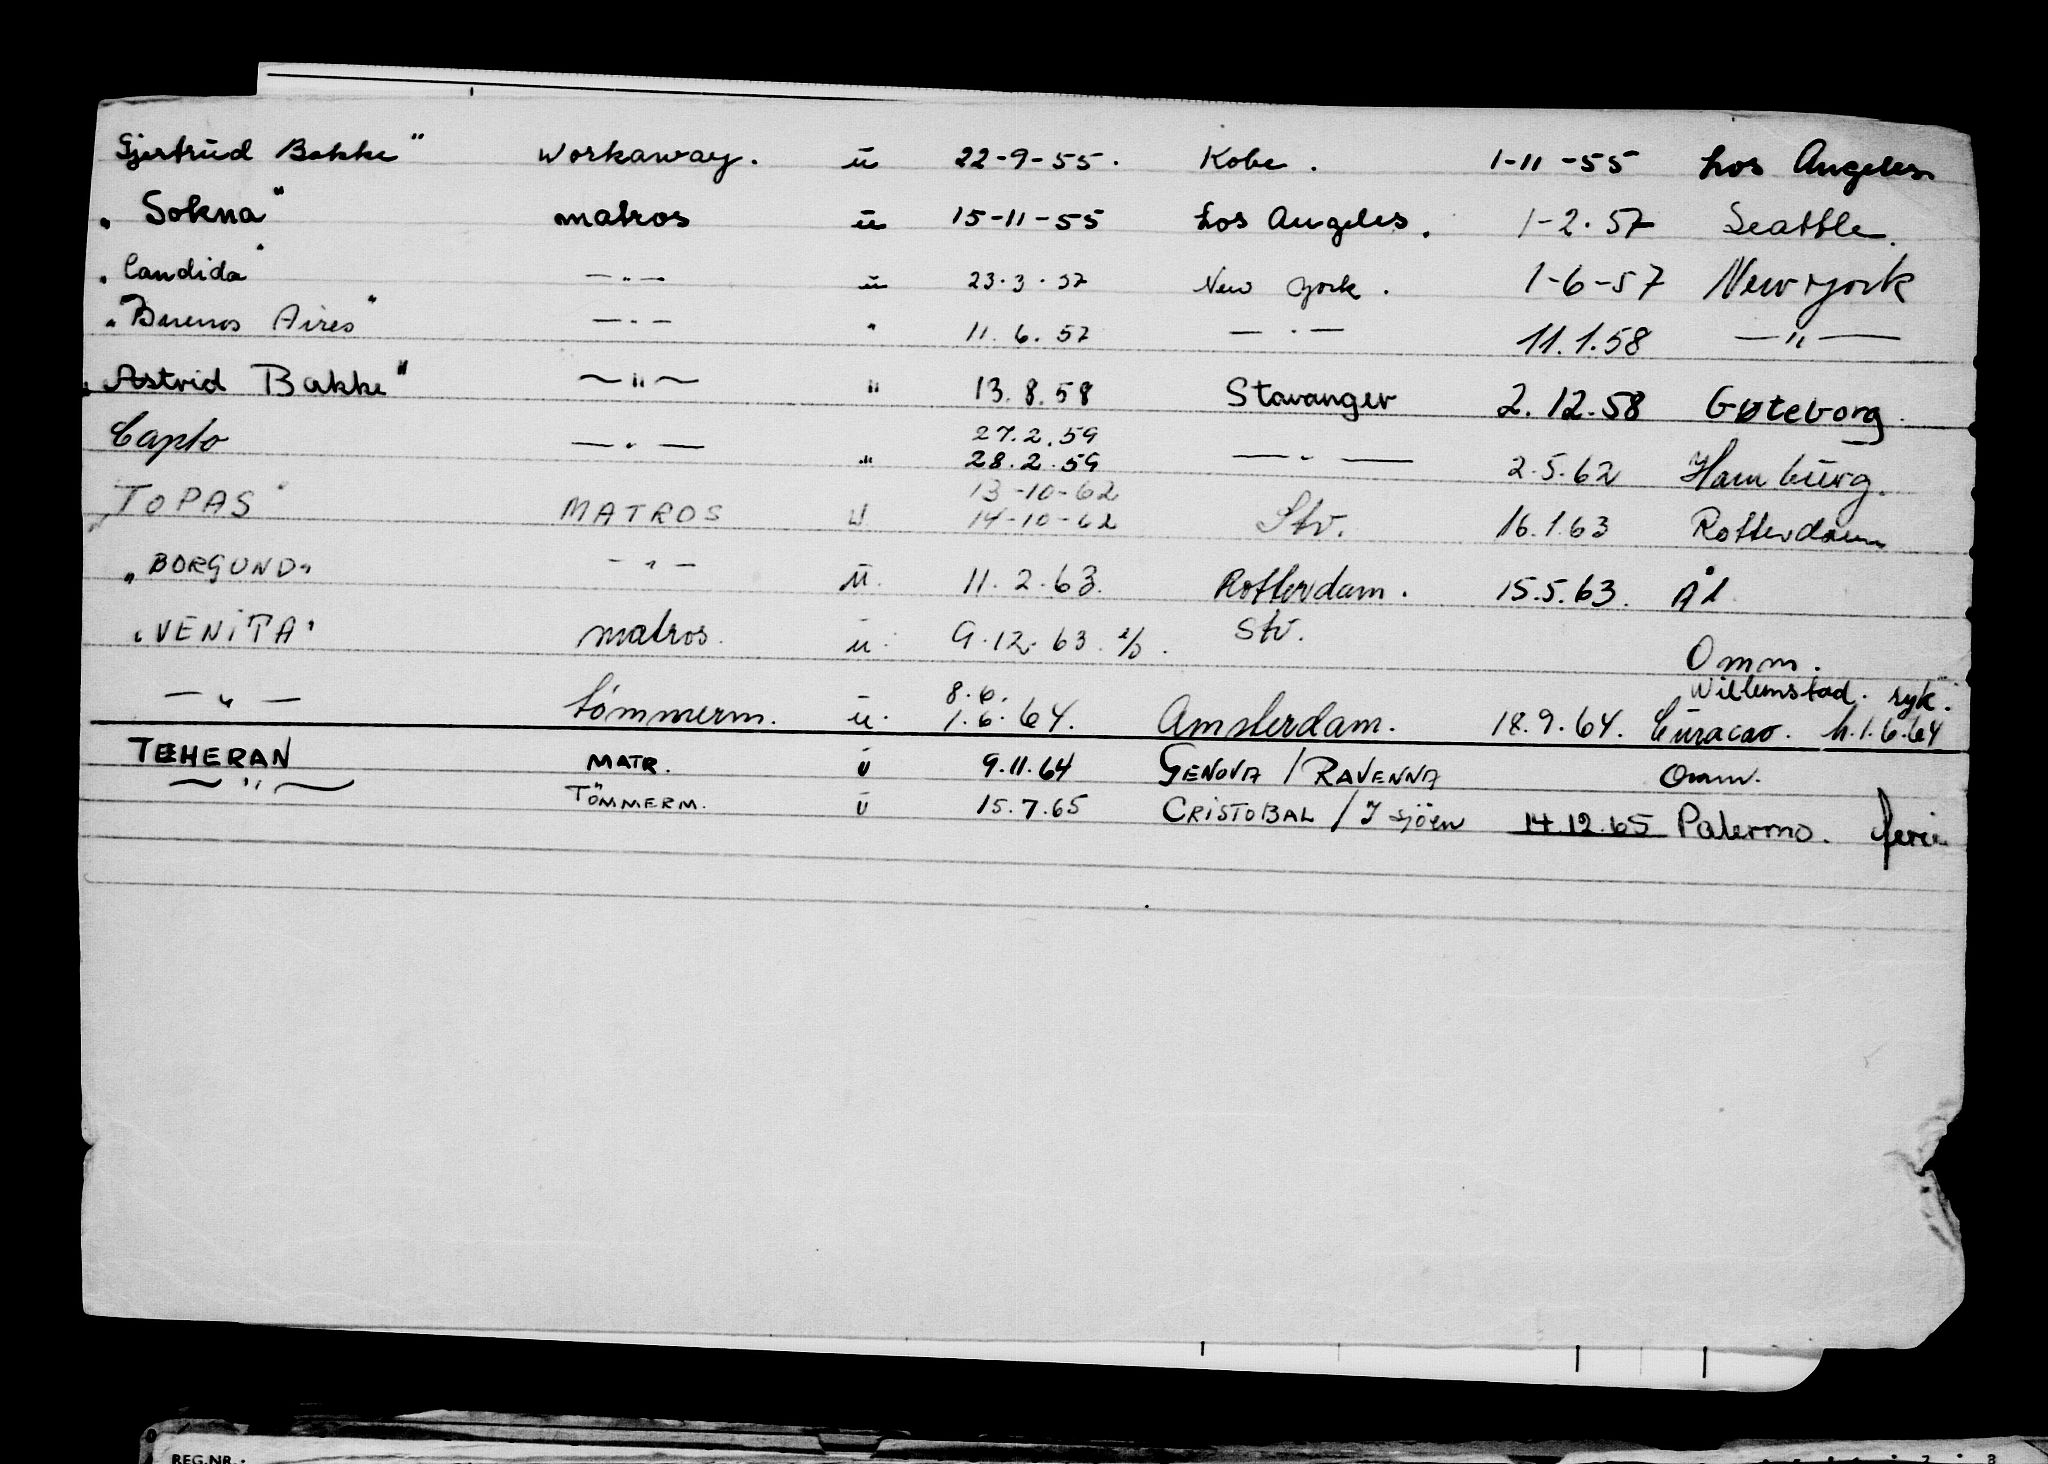 Gjertrud Bakke" workaway. ü 22-9-55. Kobe. 1-11-55 Los Angeles
„Sokna" matros ü 15-11-55 Los Angeles. 1-2.57 Seattle.
„Candida" —.— ü 23.3.57 New York. 1-6-57 New York
„Buenos Aires" —.— " 11.6.57 —.— 11.1.58 —"—
„Astrid Bakke" —"— " 13.8.58 Stavanger 2.12.58 Gøteborg.
27.2.59
Capto —"— " 28.2.59 —"— 2.5.62 Hamburg.
13-10-62
"TOPAS" MATROS u 14-10-62 Stv. 16.1.63 Rotterdam
„BORGUND" —"— ü. 11.2.63. Rotterdam. 15.5.63. Ål
"VENiTA" matros. ü. 9.12.63. Stv. Omm.
8.6. Willemstad. syk.
—"— Tömmerm. ü. 1.6.64. Amsterdam. 18.9.64. Curacao. h.1.6.64
TEHERAN MATR. ü 9.11.64 GENOVA / RAVENNA Omm.
—"— TÖMMERM. ü 15.7.65 CRiSTOBAL / I sjöen 14.12.65 Palermo. ferie
REG.NR.: